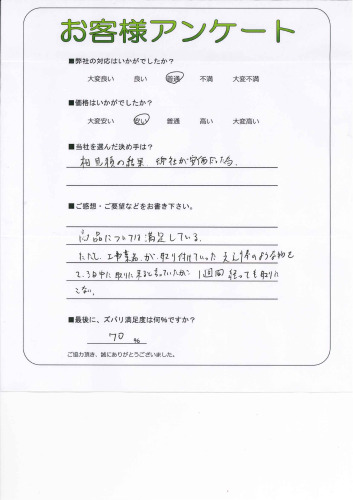 お客様アンケート
■弊社の対応はいかがでしたか？
大変良い 良い 普通 不満 大変不満
■価格はいかがでしたか？
大変安い 安い 普通 高い 大変高い
■当社を選んだ決め手は？
相見積の結果 御社が安価だった為.
■ご感想・ご要望などをお書き下さい。
品については満足している.
ただし、工事業者が取り付けていった
2.3日中に取りに来ると言っていたが 1週間経っても取りに
こない.
■最後に、ズバリ満足度は何%ですか？
70 %
ご協力頂き、誠にありがとうございました。